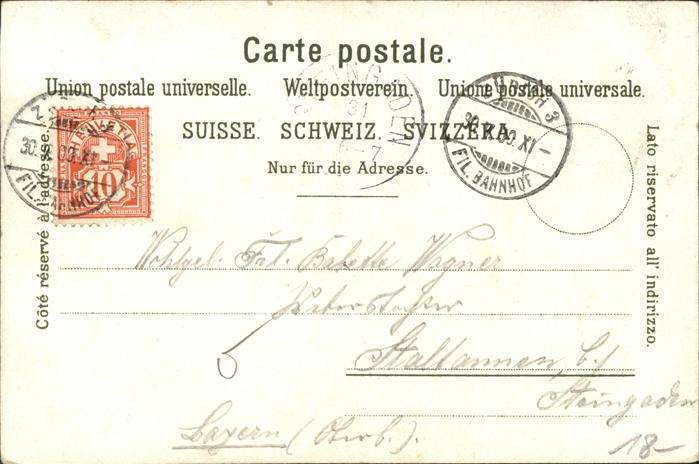 Carte postale.
Union postale universelle. Weltpostverein. Unione postale universale.
SUISSE. SCHWEIZ. SVIZZERA.
Nur für die Adresse.
Côté réservé à l'adresse.
Lato riservato all' indirizzo.
HELVETIA
10
30. 00. XI
FIL. BAHNHOF
31
ZÜRICH 3
30. 00. XI –
FIL. BAHNHOF
Wohlgeb. Frl. Babette Wagner
Staltannen b./
Steingaden
Bayern (Oberb.).
18-